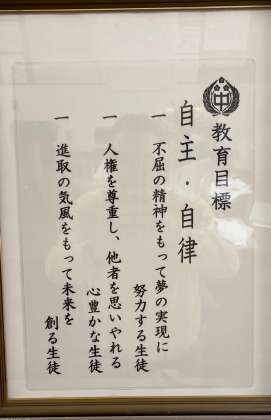 中
教育目標
自主・自律
一 不屈の精神をもって夢の実現に
努力する生徒
一 人権を尊重し、他者を思いやれる
心豊かな生徒
一 進取の気風をもって未来を
創る生徒